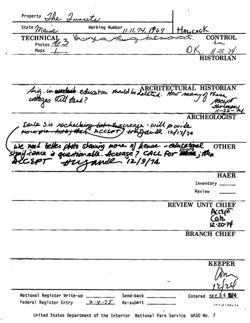 Property The Turrets
State Maine Working Number 11.11.74.1969 Hancock
TECHNICAL CONTROL
Photos 2
Maps 1 OK 11.25.74
HISTORIAN
ARCHITECTURAL HISTORIAN
Sig. in education should be deleted. How many of these
cottages still stand? Accept
11-22-74
ARCHEOLOGIST
acreage - will provide
ACCEPT 12/12/74
OTHER
We need better photo showing more of house - educational
significance is questionable. Acreage? CALL for the
ACCEPT 12/9/74
HAER
Inventory
Review
REVIEW UNIT CHIEF
Accept
12-20-74
BRANCH CHIEF
KEEPER
12/24
National Register Write-up Send-back Entered DEC 24 1974
Federal Register Entry 2.4.75 Re-submit
United States Department of the Interior National Park Service WASO No. 7